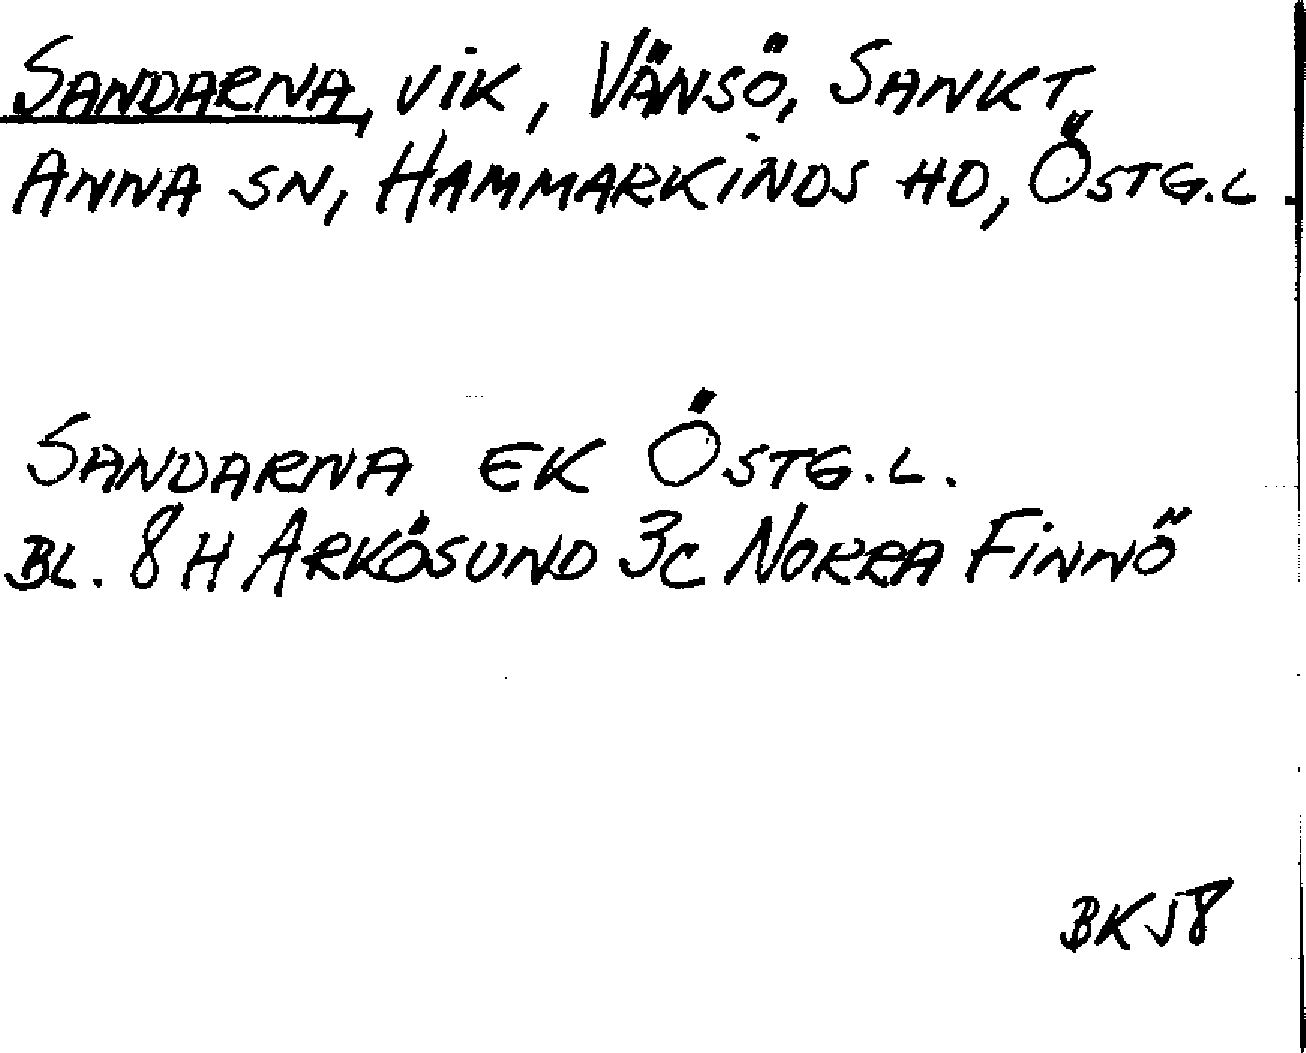 SANDARNA, VIK, VÄNSÖ, SANKT
ANNA SN, HAMMARKINDS HD, ÖSTG.L.
SANDARNA EK ÖSTG.L.
BL. 8H ARKÖSUND 3C NORRA FINNÖ
BKJ8